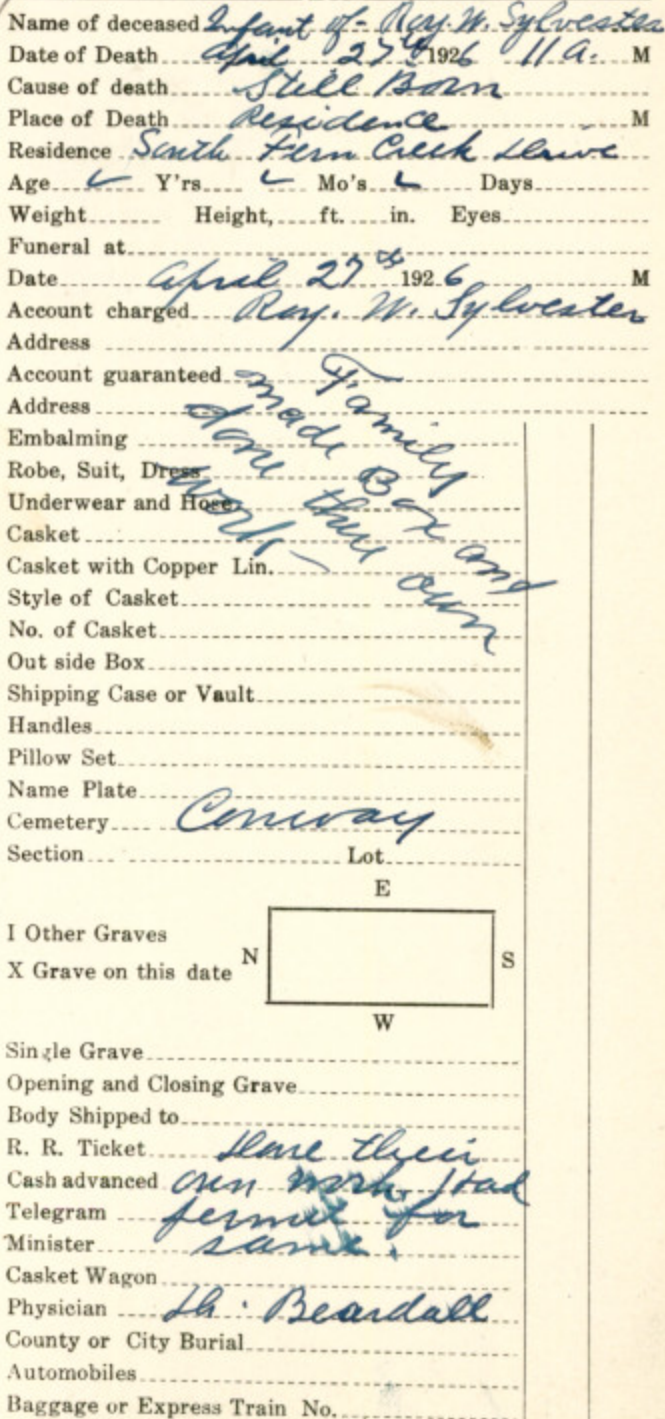 Name of deceased Infant of - Roy. W. Sylvester
Date of Death April 27th 1926 11 a. M
Cause of death Still Born
Place of Death Residence M
Residence South Fern Creek Drive
Age Y'rs Mo's Days
Weight Height, ft. in. Eyes
Funeral at
Date April 27th 1926 M
Account charged Roy. W. Sylvester
Address
Account guaranteed
Address
Family
made Box and
done there own
work
Embalming
Robe, Suit, Dress
Underwear and Hose
Casket
Casket with Copper Lin.
Style of Casket
No. of Casket
Out side Box
Shipping Case or Vault
Handles
Pillow Set
Name Plate
Cemetery Conway
Section Lot
E
I Other Graves
N S
X Grave on this date
W
Single Grave
Opening and Closing Grave
Body Shipped to
R. R. Ticket Done their
Cash advanced own work. Had
Telegram permit for
Minister same.
Casket Wagon
Physician Dr. Beardall
County or City Burial
Automobiles
Baggage or Express Train No.